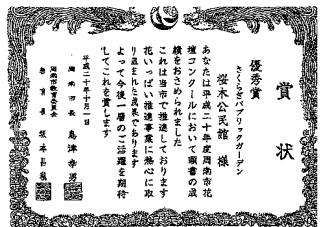 賞状
優秀賞
さくらぎパブリックガーデン
桜木公民館 様
あなたは平成二十年度周南市花
壇コンクールにおいて頭書の成
績をおさめられました
これは当市で推進しております
花いっぱい推進事業に熱心に取
り組まれた成果であります
よって今後一層のご活躍を期待
してこれを賞します
平成二十年十月一日
周南市長 島津幸男
周南市教育委員会
教育長 坂本